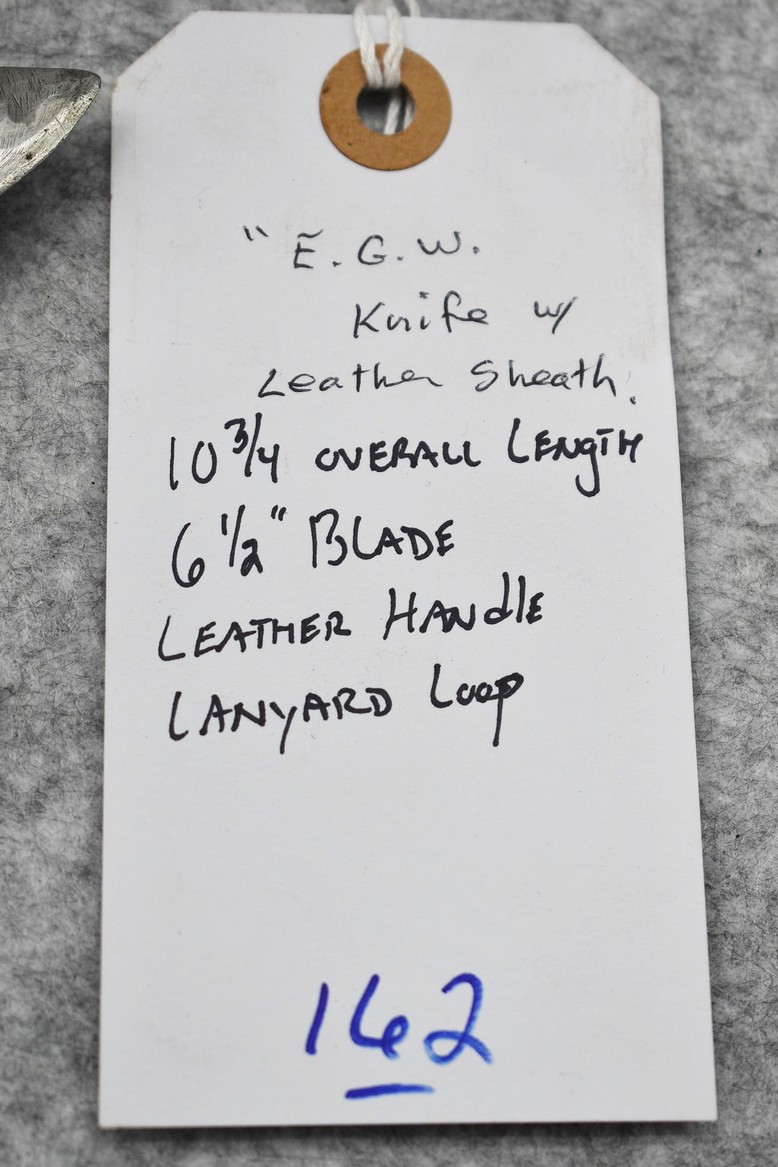 " E. G. W.
Knife w/
Leather Sheath.
10 3/4 OVERALL LENGTH
6 1/2" BLADE
LEATHER HANdlE
LANYARD Loop
162